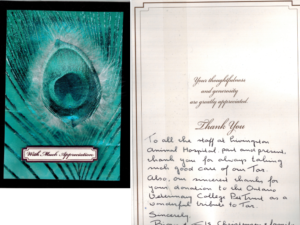 With Much Appreciation
Your thoughtfulness
and generosity
are greatly appreciated.
Thank You
To all the staff at
Animal Hospital, past and present,
thank you for always taking
such good care of our Tas.
Also, our sincerest thanks for
your donation to the Ontario
Veterinary College Pet Trust as a
wonderful tribute to Tas.
Sincerely,